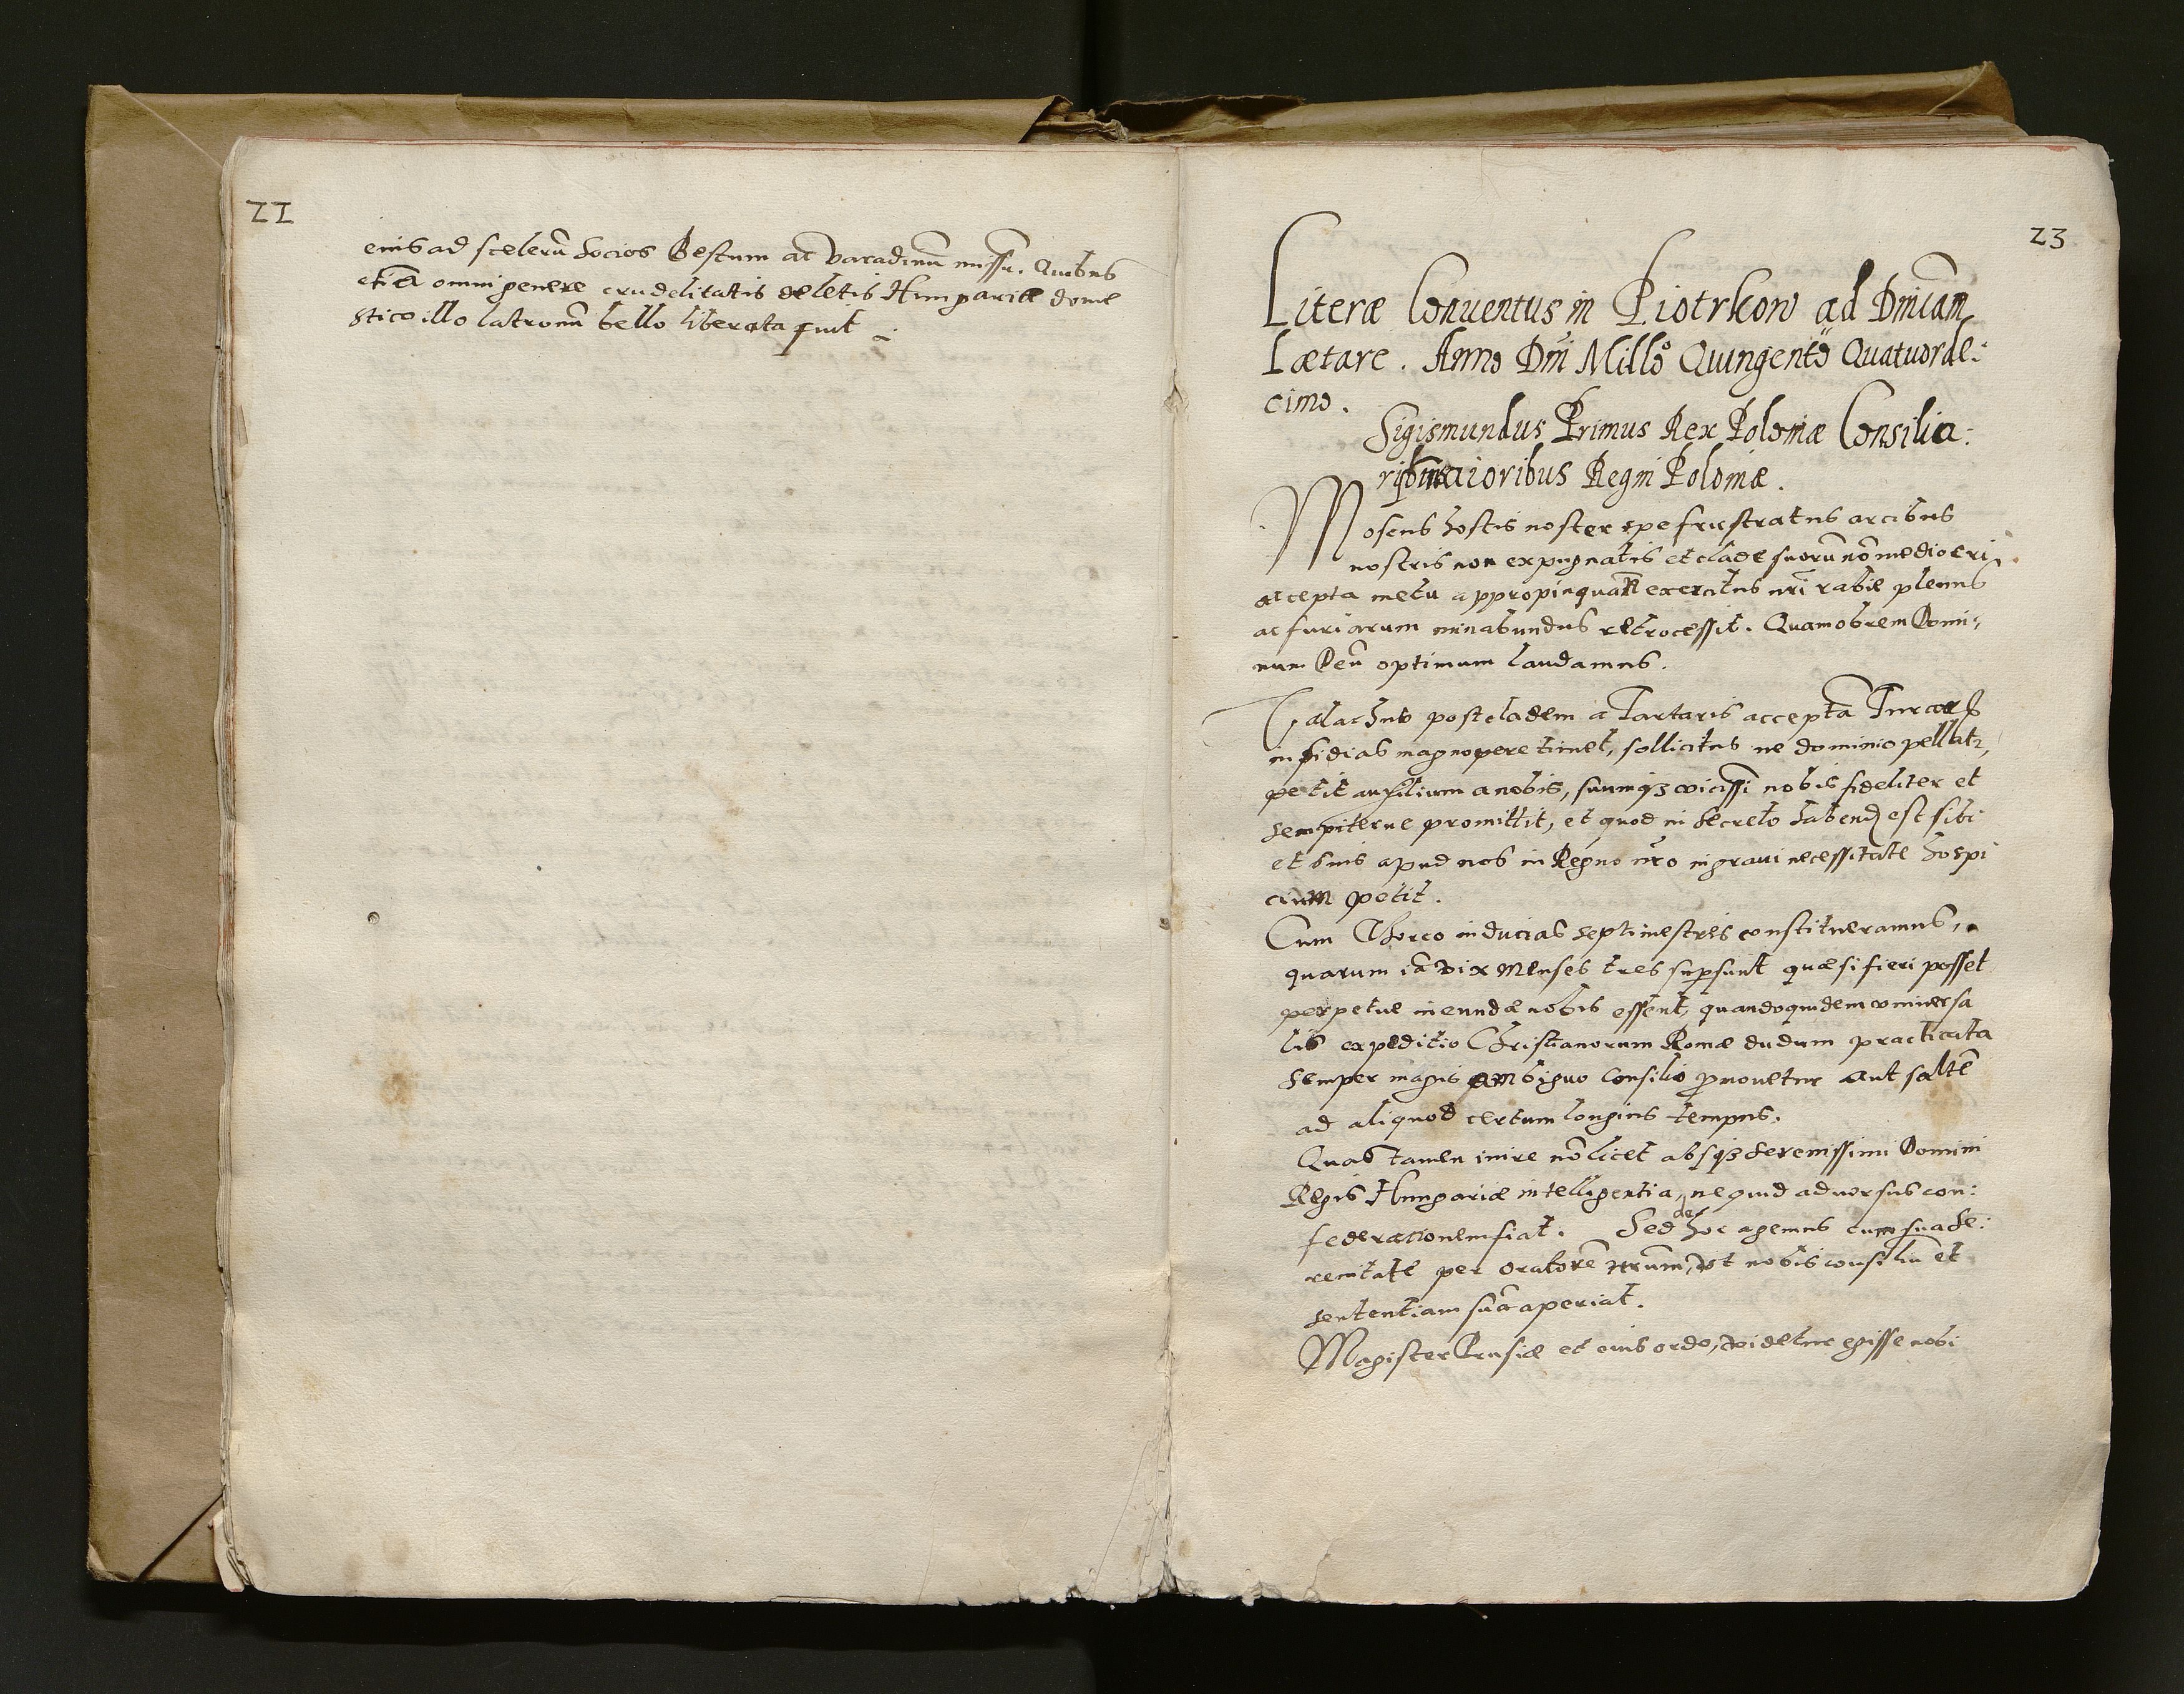 22
eius ad scelerū socios Pestum ac Varadinū missū. Quibus
etiā omni genere crudelitatis deletis Hungariæ dome
stico illo latronū bello liberata fuit
23
Literæ Conuentus in Piotrkow ad Dnicam
Lætare. Anno Dni Millo Quingento Quatuorde:
cimo.
Sigismundus Primus Rex Poloniæ Consilia:
rijs maioribus Regni Poloniæ.
Moscus hostis noster spe frustratus arcibus
nostris non expugnatis et clade suorū nō mediocri
accepta metu appropinquan exercitus nri rabie plenus
ac furiarum minabundus retrocessit. Quamobrem Domi-
num Deū optimum laudamus.
Valachus post cladem a Tartaris acceptā Turcarū
insidias magnopere timet, sollicitus ne dominio pellatr,
petit auxilium a nobis, suumqz vicissi nobis fideliter et
sempiterne promittit, et quod in secreto habend est sibi
et suis apud nos in Regno nro in graui necessitate hospi
cium petit.
Cum Thurco inducias septimestres constitueramus,
quarum iā vix menses tres supsunt quæ si fieri posset
perpetue ineundæ nobis essent, quandoquidem vniuersa
lis expeditio Christianorum Romæ dudum practicata
semper magis ambiguo consilio pmouetur aut saltē
ad aliquod certum longius tempus.
Quas tamen inire nō licet absqz Serenissimi Domini
Regis Hungariæ intelligentia, ne quid aduersus con:
federationem fiat. Sed de hoc agemus cum sua Se:
renitate per oratorē nrum, vt nobis consiliū et
sententiam suā aperiat.
Magister Prusiæ et eius ordo, videtur egisse nobi